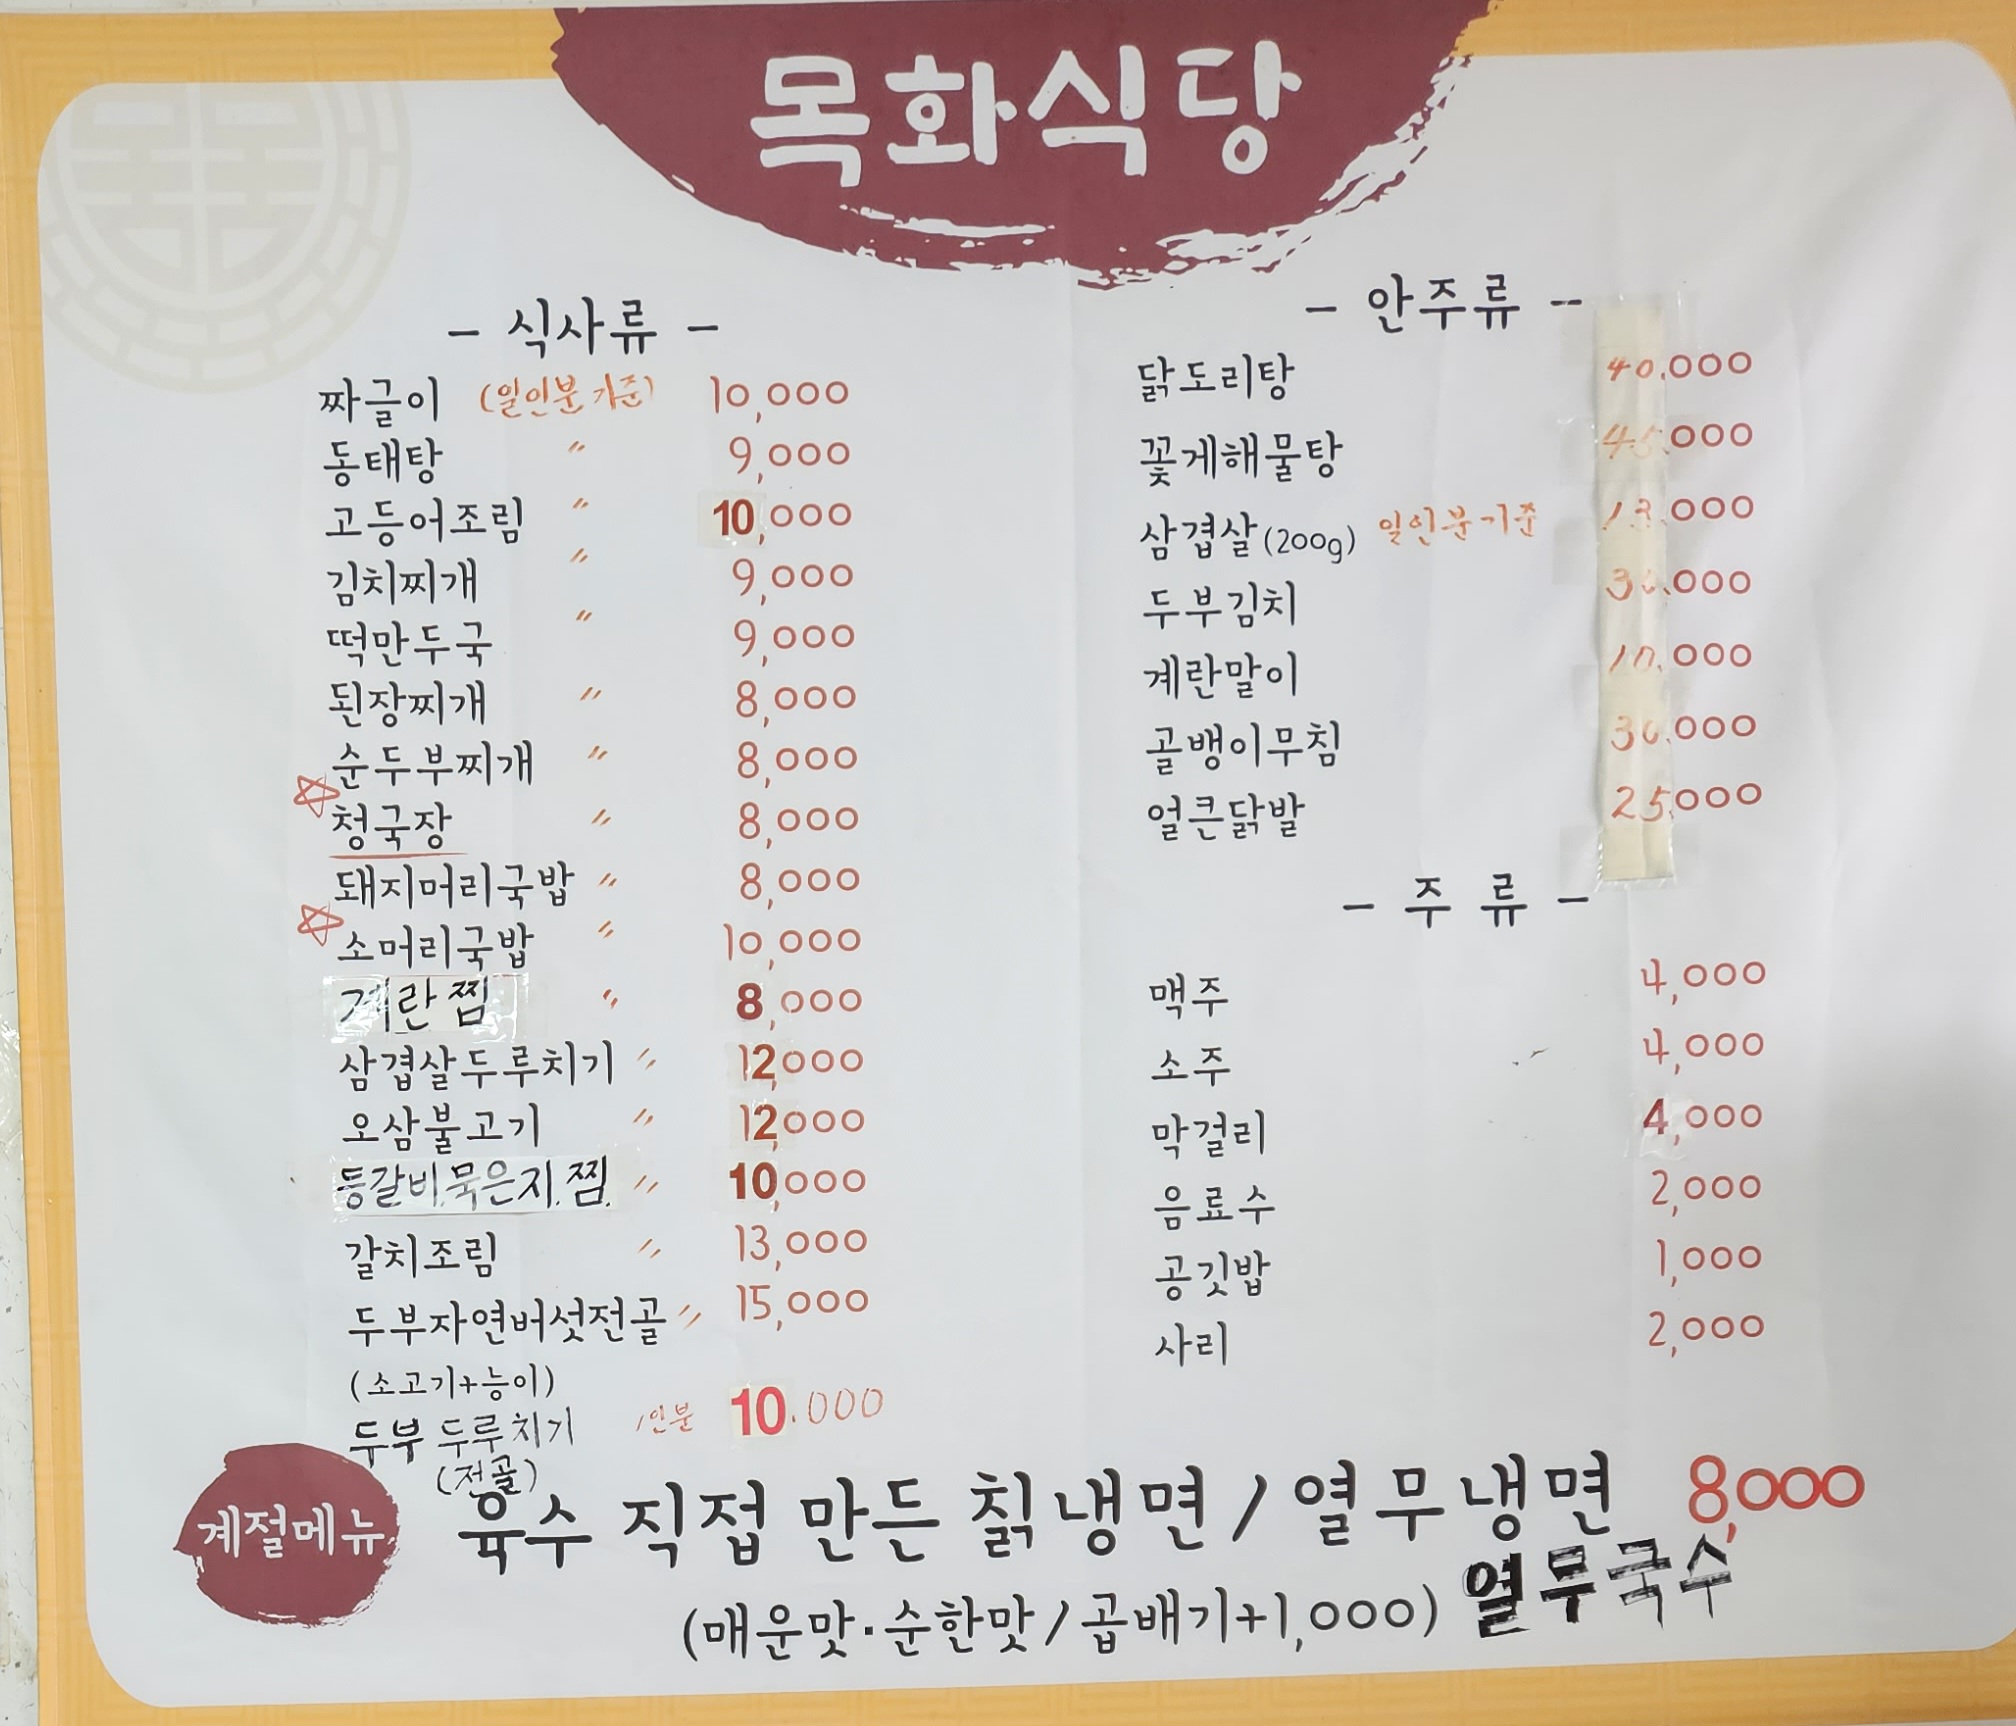 목화식당
- 식사류 -
짜글이 (일인분 기준) 10,000
동태탕 〃 9,000
고등어조림 〃 10,000
김치찌개 〃 9,000
떡만두국 〃 9,000
된장찌개 〃 8,000
순두부찌개 〃 8,000
청국장 〃 8,000
돼지머리국밥 〃 8,000
소머리국밥 〃 10,000
계란찜 〃 8,000
삼겹살두루치기 〃 12,000
오삼불고기 〃 12,000
등갈비묵은지찜 〃 10,000
갈치조림 〃 13,000
두부자연버섯전골 〃 15,000
(소고기+능이)
두부 두루치기 1인분 10.000
(전골)
- 안주류 -
닭도리탕 40.000
꽃게해물탕 45.000
삼겹살(200g) 일인분기준 13.000
두부김치 30.000
계란말이 10.000
골뱅이무침 30.000
얼큰닭발 25.000
- 주류 -
맥주 4,000
소주 4,000
막걸리 4,000
음료수 2,000
공깃밥 1,000
사리 2,000
계절메뉴
육수 직접 만든 칡냉면/열무냉면 8,000
열무국수
(매운맛·순한맛/곱배기+1,000)